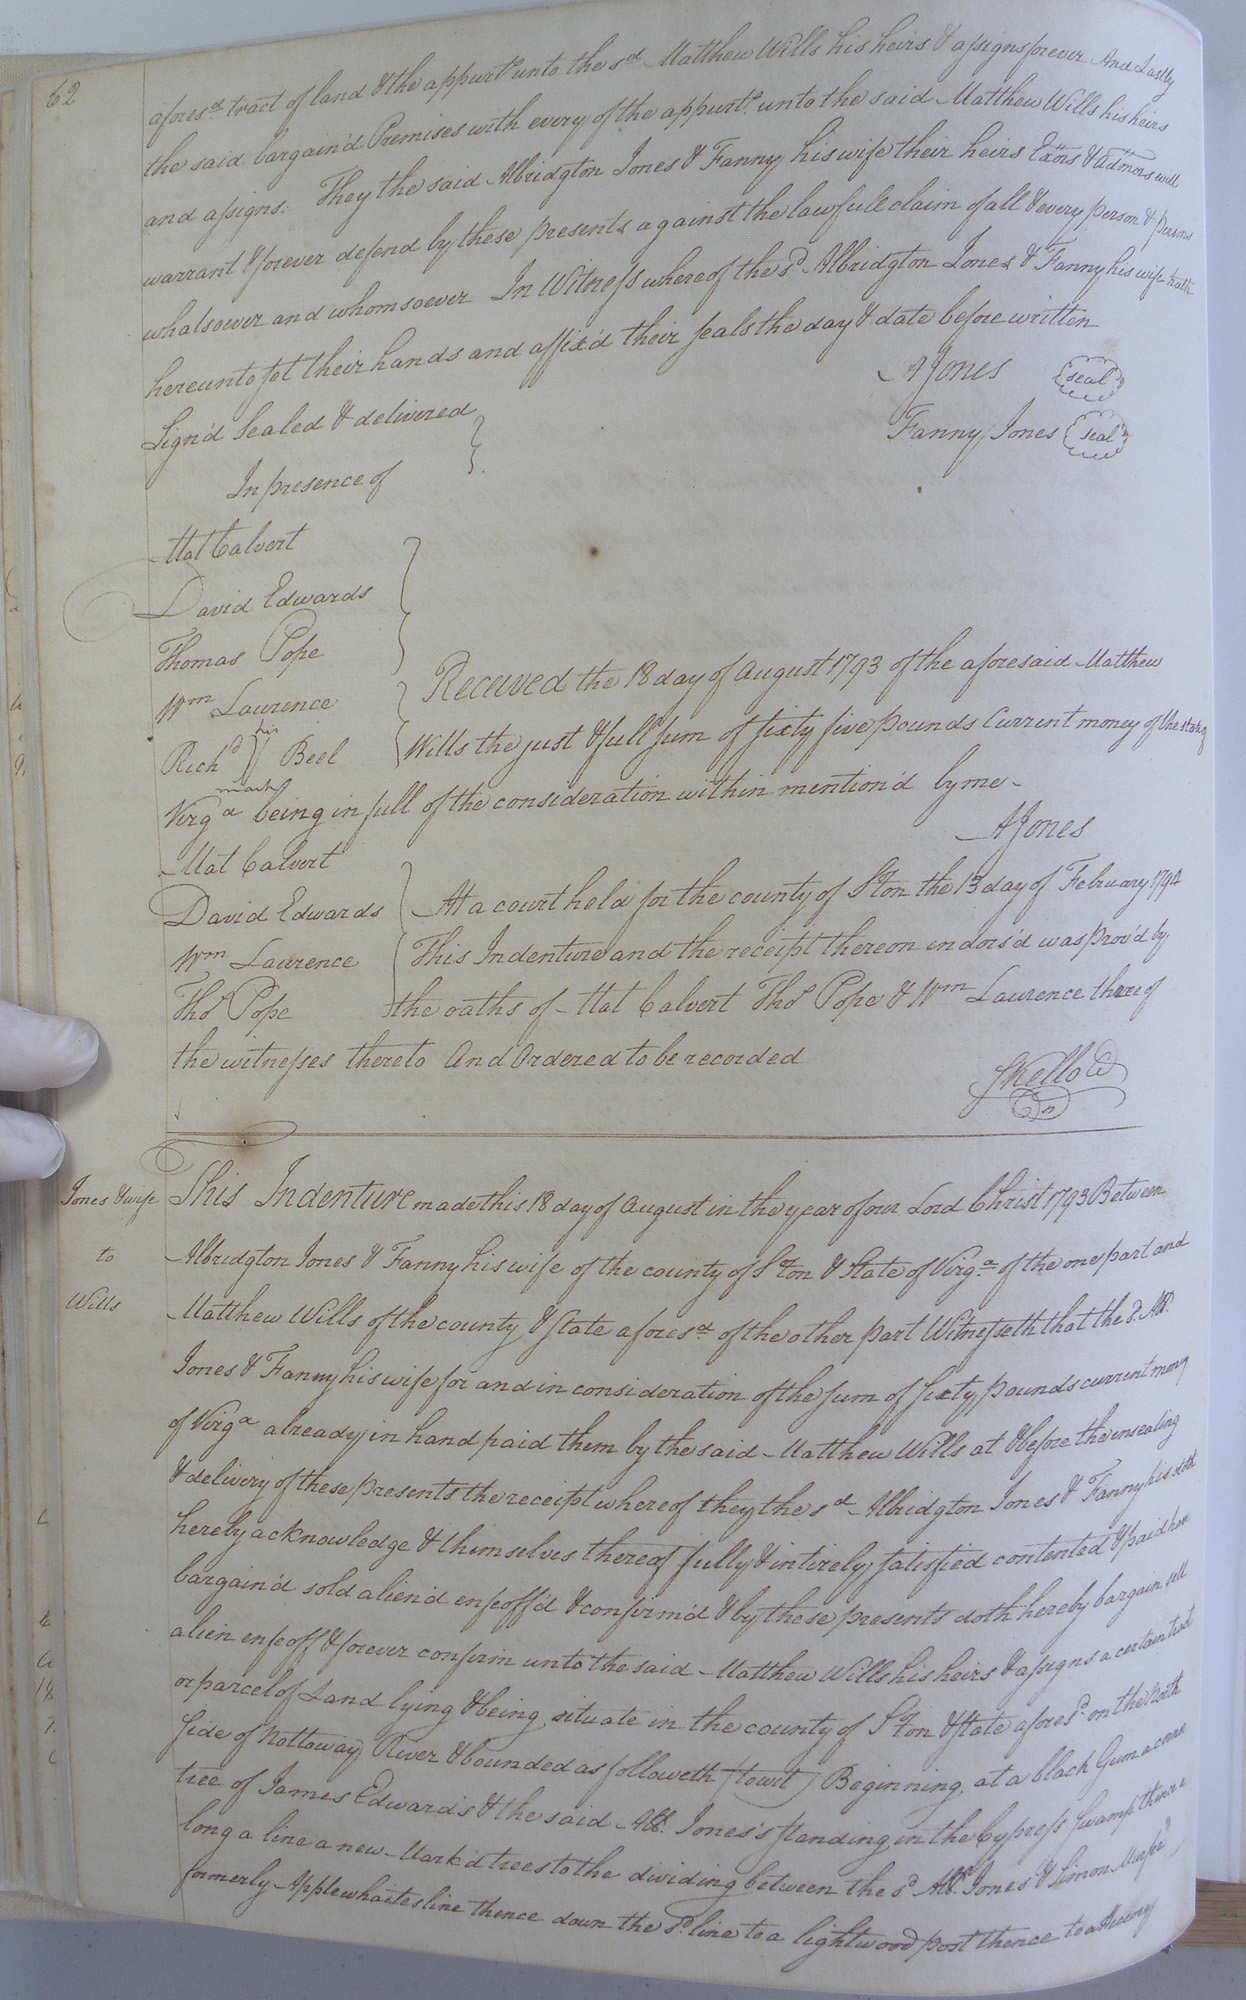 62
afores.d tract of land & the appurt.s unto the s.d Matthew Wills his heirs & assigns forever And Lastly
the said bargain'd Premises with every of the appurt.s unto the said Matthew Wills his heirs
and assigns: They the said Albridgton Jones & Fanny his wife their heirs Exors & Admors will
warrant & forever defend by these presents against the lawfull claim of all & every person & persons
whatsoever and whomsoever In Witness whereof the s.d Albridgton Jones & Fanny his wife hath
hereunto set their hands and affix'd their seals the day & date before written
Sign'd Sealed & delivered
AJones seal
In presence of
Fanny Jones seal
Mat Calvert
David Edwards
Thomas Pope
Wm Laurence
Rich.d his mark Beel
Received the 18 day of August 1793 of the aforesaid Matthew
Wills the just & full sum of sixty five pounds Current money of the state of
Virg.a being in full of the consideration within mention'd by me
AJones
Mat Calvert
David Edwards
Wm Laurence
Tho.s Pope
At a court held for the county of S.ton the 13 day of February 1794
This Indenture and the receipt thereon endors'd was prov'd by
the oaths of Mat Calvert Tho.s Pope & Wm Laurence three of
the witnesses thereto And Ordered to be recorded
SKello Cl
Jones & wife
to
Wills
This Indenture made this 18 day of August in the year of our Lord Christ 1793 Between
Albridgton Jones & Fanny his wife of the county of S.ton & State of Virg.a of the one part and
Matthew Wills of the county & State afores.d of the other part Witnesseth that the s.d Alb.
Jones & Fanny his wife for and in consideration of the sum of sixty pounds current money
of Virg.a already in hand paid them by the said Matthew Wills at & before the ensealing
& delivery of these presents the receipt whereof they the s.d Albridgton Jones & Fanny his doth
hereby acknowledge & themselves thereof fully & intirely satisfied contented & paid have
bargain'd sold alien'd enfeoff'd & confirm'd & by these presents doth hereby bargain sell
alien enfeoff & forever confirm unto the said Matthew Wills his heirs & assigns a certain tract
or parcel of Land lying & being situate in the county of S.ton & State afores.d on the North
side of Nottoway River & bounded as followeth (towit) Beginning at a black Gum a corne
tree of James Edwards's & the said Alb. Jones's standing in the Cypress Swamp thence a
long a line a new Mark'd trees to the dividing between the s.d Alb. Jones & Simon
formerly Applewhaites line thence down the s.d line to a lightwood post thence to a